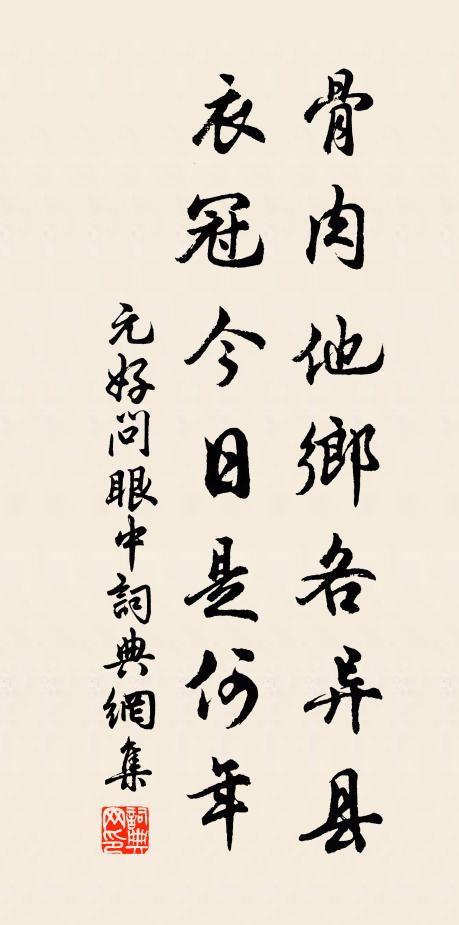 骨肉他鄉各异县
衣冠今日是何年
元好問眼中詞典網集
詞典网印